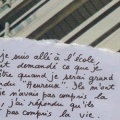 je suis allé à l'école,
ont demandé ce que je
être quand je serai grand
"heureux". Ils m'ont
je n'avais pas compris la
j'ai répondu qu'ils
pas compris la vie.